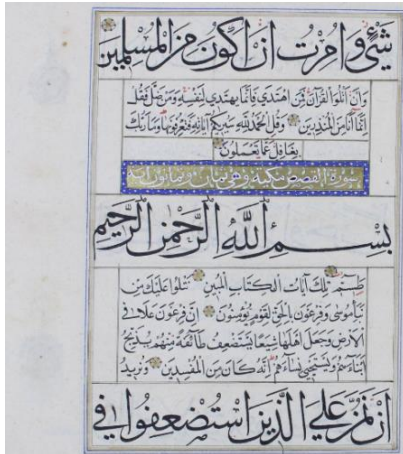 شَيْءٍ وَأُمِرْتُ أَنْ أَكُونَ مِنَ الْمُسْلِمِينَ
وَأَنْ أَتْلُوَ الْقُرْآنَ فَمَنِ اهْتَدَى فَإِنَّمَا يَهْتَدِي لِنَفْسِهِ وَمَنْ ضَلَّ فَقُلْ
إِنَّمَا أَنَا مِنَ الْمُنْذِرِينَ وَقُلِ الْحَمْدُ لِلَّهِ سَيُرِيكُمْ آيَاتِهِ فَتَعْرِفُونَهَا وَمَا رَبُّكَ
بِغَافِلٍ عَمَّا تَعْمَلُونَ
سورة القصص مكية وهي ثمان وثمانون آية
بِسْمِ اللَّهِ الرَّحْمَنِ الرَّحِيمِ
طسم تِلْكَ آيَاتُ الْكِتَابِ الْمُبِينِ نَتْلُوا عَلَيْكَ مِنْ
نَبَإِ مُوسَى وَفِرْعَوْنَ بِالْحَقِّ لِقَوْمٍ يُؤْمِنُونَ إِنَّ فِرْعَوْنَ عَلَا فِي
الْأَرْضِ وَجَعَلَ أَهْلَهَا شِيَعًا يَسْتَضْعِفُ طَائِفَةً مِنْهُمْ يُذَبِّحُ
أَبْنَاءَهُمْ وَيَسْتَحْيِي نِسَاءَهُمْ إِنَّهُ كَانَ مِنَ الْمُفْسِدِينَ وَنُرِيدُ
أَنْ نَمُنَّ عَلَى الَّذِينَ اسْتُضْعِفُوا فِي